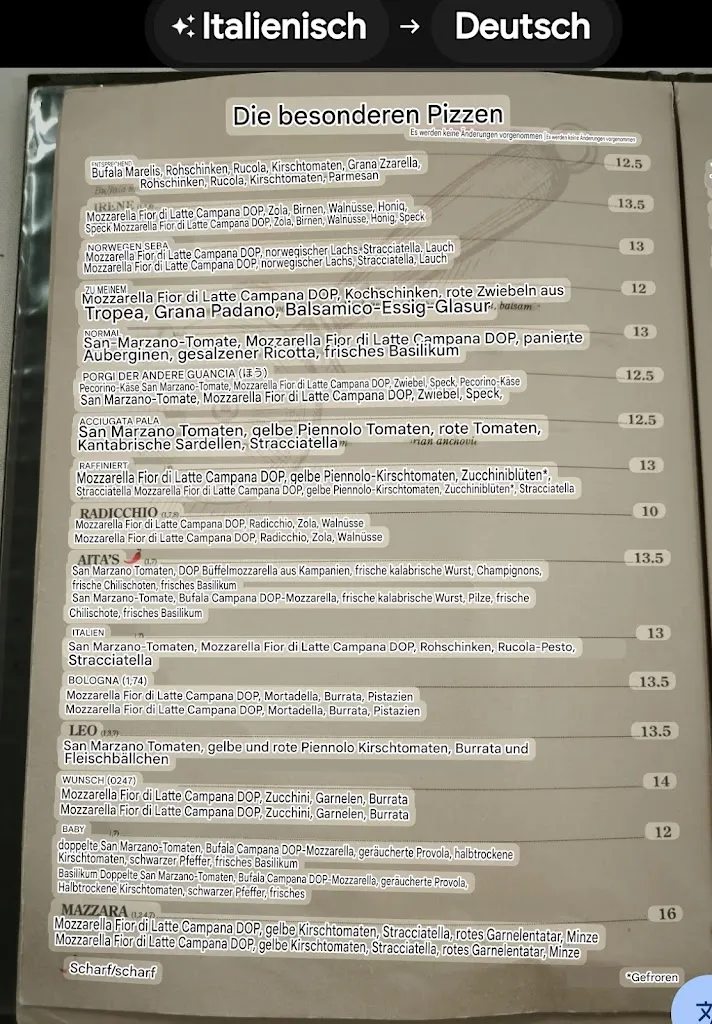 Italienisch → Deutsch
Die besonderen Pizzen
Es werden keine Änderungen vorgenommen Es werden keine Änderungen vorgenommen
ENTSPRECHEND
Bufala Marelis, Rohschinken, Rucola, Kirschtomaten, Grana Zzarella, 12.5
Rohschinken, Rucola, Kirschtomaten, Parmesan
IRENE 13.5
Mozzarella Fior di Latte Campana DOP, Zola, Birnen, Walnüsse, Honig,
Speck Mozzarella Fior di Latte Campana DOP, Zola, Birnen, Walnüsse, Honig, Speck
NORWEGEN SEBA 13
Mozzarella Fior di Latte Campana DOP, norwegischer Lachs, Stracciatella, Lauch
Mozzarella Fior di Latte Campana DOP, norwegischer Lachs, Stracciatella, Lauch
ZU MEINEM 12
Mozzarella Fior di Latte Campana DOP, Kochschinken, rote Zwiebeln aus
Tropea, Grana Padano, Balsamico-Essig-Glasur balsam
NORMAL 13
San-Marzano-Tomate, Mozzarella Fior di Latte Campana DOP, panierte
Auberginen, gesalzener Ricotta, frisches Basilikum
PORGI DER ANDERE GUANCIA (ほう) 12.5
Pecorino-Käse San Marzano-Tomate, Mozzarella Fior di Latte Campana DOP, Zwiebel, Speck, Pecorino-Käse
San Marzano-Tomate, Mozzarella Fior di Latte Campana DOP, Zwiebel, Speck,
ACCIUGATA PALA 12.5
San Marzano Tomaten, gelbe Piennolo Tomaten, rote Tomaten,
Kantabrische Sardellen, Stracciatella rian anchovie
RAFFINIERT 13
Mozzarella Fior di Latte Campana DOP, gelbe Piennolo-Kirschtomaten, Zucchiniblüten*,
Stracciatella Mozzarella Fior di Latte Campana DOP, gelbe Piennolo-Kirschtomaten, Zucchiniblüten*, Stracciatella
RADICCHIO (1,7,8) 10
Mozzarella Fior di Latte Campana DOP, Radicchio, Zola, Walnüsse
Mozzarella Fior di Latte Campana DOP, Radicchio, Zola, Walnüsse
AITA'S (1,7) 13.5
San Marzano Tomaten, DOP Büffelmozzarella aus Kampanien, frische kalabrische Wurst, Champignons,
frische Chilischoten, frisches Basilikum
San Marzano-Tomate, Bufala Campana DOP-Mozzarella, frische kalabrische Wurst, Pilze, frische
Chilischote, frisches Basilikum
ITALIEN 13
San Marzano-Tomaten, Mozzarella Fior di Latte Campana DOP, Rohschinken, Rucola-Pesto,
Stracciatella
BOLOGNA (1,74) 13.5
Mozzarella Fior di Latte Campana DOP, Mortadella, Burrata, Pistazien
Mozzarella Fior di Latte Campana DOP, Mortadella, Burrata, Pistazien
LEO 13.5
San Marzano Tomaten, gelbe und rote Piennolo Kirschtomaten, Burrata und
Fleischbällchen
WUNSCH (0247) 14
Mozzarella Fior di Latte Campana DOP, Zucchini, Garnelen, Burrata
Mozzarella Fior di Latte Campana DOP, Zucchini, Garnelen, Burrata
BABY 12
doppelte San Marzano-Tomaten, Bufala Campana DOP-Mozzarella, geräucherte Provola, halbtrockene
Kirschtomaten, schwarzer Pfeffer, frisches Basilikum
Basilikum Doppelte San Marzano-Tomaten, Bufala Campana DOP-Mozzarella, geräucherte Provola,
Halbtrockene Kirschtomaten, schwarzer Pfeffer, frisches
MAZZARA (1,2,4,7) 16
Mozzarella Fior di Latte Campana DOP, gelbe Kirschtomaten, Stracciatella, rotes Garnelentatar, Minze
Mozzarella Fior di Latte Campana DOP, gelbe Kirschtomaten, Stracciatella, rotes Garnelentatar, Minze
Scharf/scharf *Gefroren